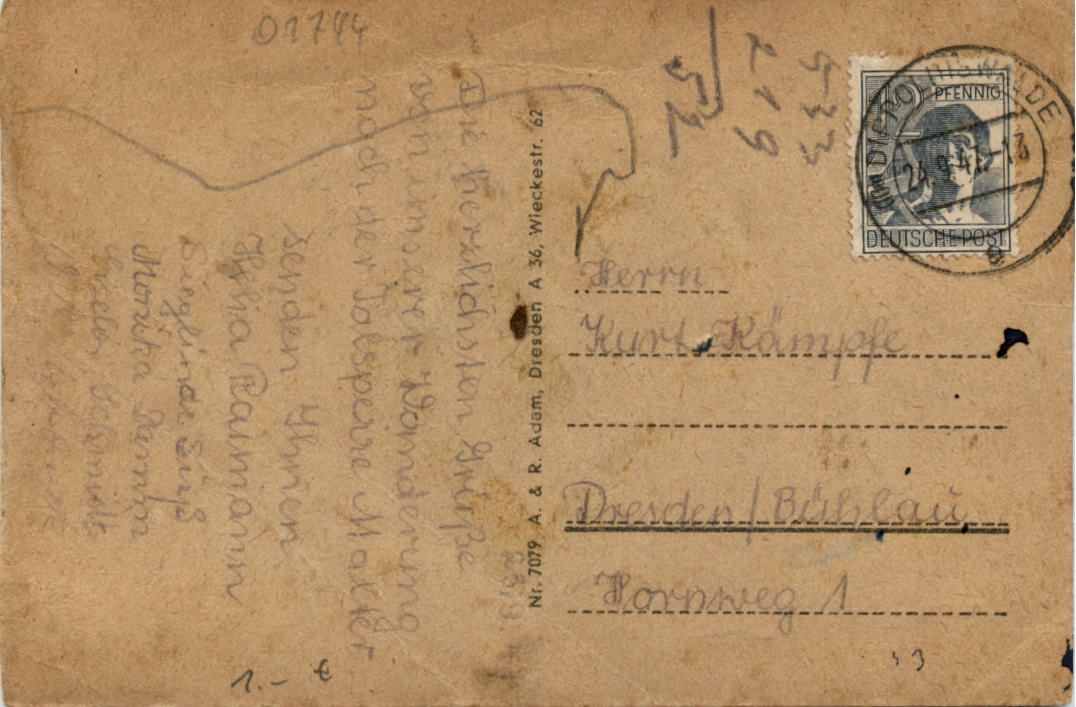 01744
Die herzlichsten Grüße
von unserer Wanderung
nach der Talsperre Malter
senden Ihnen
Raimann
Sieglinde Süß
Monika
Nr. 7079 A. & R. Adam, Dresden A 36, Wieckestr. 62
533
219
12 PFENNIG
DEUTSCHE POST
DIPPOLDISWALDE
24.9.47-13
Herrn
Kurt Kämpfe
Dresden/Bühlau
Hornweg 1
1.- €
53